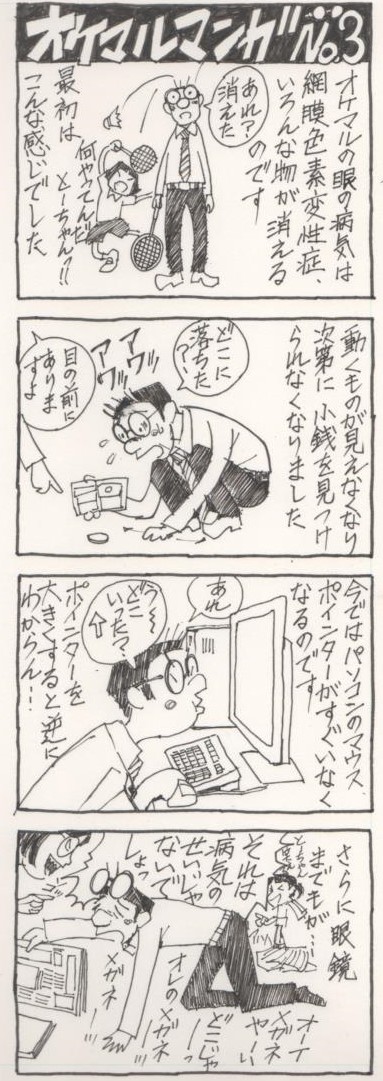 オケマルマンガNo.3
オケマルの眼の病気は
網膜色素変性症、
いろんな物が消える
のです
あれ?
消えた
何やってんだ
とーちゃん!!
最初は
こんな感じでした
動くものが見えなくなり
次第に小銭を見つけ
られなくなりました
どこに
落ちた?
アワワッ
アワワッ
目の前に
ありま
すよ
今ではパソコンのマウス
ポインターがすぐいなく
なるのです
あれ
う〜
どこ
いった?
ポインターを
大きくすると逆に
わからん…
さらに眼鏡
までもが…
それは
病気の
せいじゃ
ないで
しょっ
オーイ
メガネ
やーい
オレのメガネ
どこじゃーっ
メガネ
メガネ